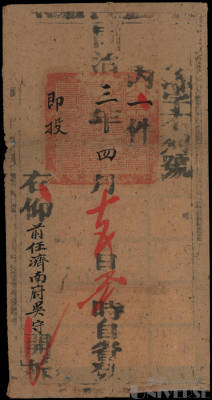 內一件
同治三年四月十五日 時自省發
即投
右仰前任濟南府吳守開拆
UNIVERSE